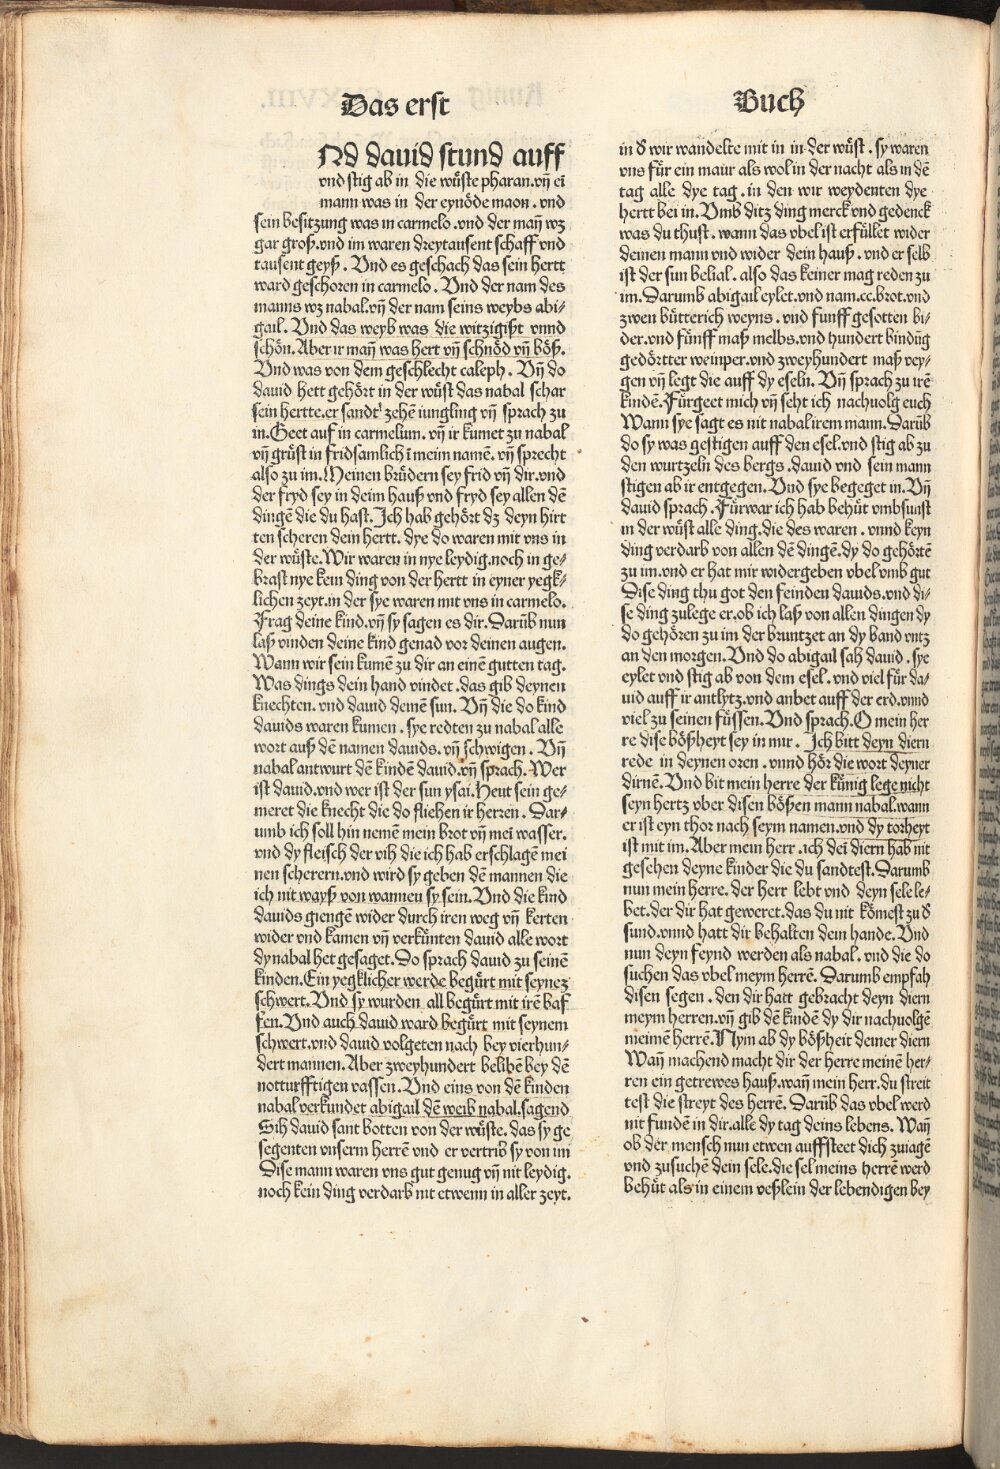 Das erst
Buch
Nd dauid stund auff
vnd stig ab in die wuͤste pharan.vñ eĩ
mann was in der eynoͤde maon . vnd
sein besitzung was in carmelo .vnd der mañ wz
gar groß.vnd im waren dreytausent schaff vnd
tausent geyß . Vnd es geschach das sein hertt
ward geschoren in carmelo . Vnd der nam des
manns wz nabal.vñ der nam seins weybs abi⸗
gail . Vnd das weyb was die witzigißt vnnd
schoͤn. Aber ir mañ was hert vñ schnoͤd vñ boͤß.
Vnd was von dem geschlecht caleph . Vñ do
dauid hett gehoͤrt in der wuͤst das nabal schar
sein hertte.er sandt zehẽ iungling vñ sprach zu
in.Geet auf in carmelum. vñ ir kumet zu nabal
vñ gruͤst in fridsamlich ĩ meim namẽ. vñ sprecht
also zu im.Meinen bruͤdern sey frid vñ dir.vnd
der fryd sey in deim hauß vnd fryd sey allen dẽ
dingẽ die du hast. Ich hab gehoͤrt dz deyn hirt
ten scheren dein hertt. dye do waren mit vns in
der wuͤste.Wir waren in nye leydig.noch in ge⸗
brast nye kein ding von der hertt in eyner yegk⸗
lichen zeyt.in der sye waren mit vns in carmelo.
Frag deine kind.vñ sy sagen es dir.Darũb nun
laß vinden deine kind genad vor deinen augen.
Wann wir sein kumẽ zu dir an einẽ gutten tag.
Was dings dein hand vindet .das gib deynen
knechten. vnd dauid deinẽ sun. Vñ die do kind
dauids waren kumen . sye redten zu nabal alle
wort auß dẽ namen dauids. vñ schwigen . Vñ
nabal antwurt dẽ kindẽ dauid.vñ sprach. Wer
ist dauid.vnd wer ist der sun ysai.Heut sein ge⸗
meret die knecht die do fliehen ir herren . Dar⸗
umb ich soll hin nemẽ mein brot vñ meĩ wasser.
vnd dy fleisch der vih die ich hab erschlagẽ mei
nen scherern.vnd wird sy geben dẽ mannen die
ich nit wayß von wanneu sy sein. Vnd die kind
dauids giengẽ wider durch iren weg vñ kerten
wider vnd kamen vñ verkuͤnten dauid alle wort
dy nabal het gesaget.Do sprach dauid zu seinẽ
kinden.Ein yegklicher werde beguͤrt mit seynez
schwert.Vnd sy wurden all beguͤrt mit irẽ baf
fen.Vnd auch dauid ward beguͤrt mit seynem
schwert.vnd dauid volgeten nach bey vierhun⸗
dert mannen.Aber zweyhundert belibẽ bey dẽ
notturfftigen vassen . Vnd eins von dẽ kinden
nabal verkundet abigail dẽ weib nabal.sagend
Sih dauid sant botten von der wuͤste. das sy ge
segenten vnserm herrẽ vnd er vertrib sy von im
Dise mann waren vns gut genug vñ nit leydig.
noch kein ding verdarb mit etwenn in aller zeyt.
in ð wir wandelte mit in in der wuͤst . sy waren
vns fuͤr ein maur als wol in der nacht als in dẽ
tag alle dye tag .in den wir weydenten dye
hertt bei in.Vmb ditz ding merck vnd gedenck
was du thust . wann das vbel ist erfuͤllet wider
deinen mann vnd wider dein hauß . vnd er selb
ist der sun belial . also das keiner mag reden zu
im.Darumb abigail eylet.vnd nam.cc.brot.vnd
zwen buͤtterich weyns . vnd funff gesotten bi⸗
der.vnd fuͤnff maß melbs.vnd hundert binduͤg
gedoͤrtter weinper.vnd zweyhundert maß vey⸗
gen vñ legt die auff dy eseln. Vñ sprach zu irẽ
kindẽ.Fuͤrgeet mich vñ seht ich nachuolg euch
Wann sye sagt es nit nabal irem mann.Darũb
do sy was gestigen auff den esel.vnd stig ab zu
den wurtzeln des bergs .dauid vnd sein mann
stigen ab ir entgegen. Vnd sye begeget in.Vñ
dauid sprach . Fuͤrwar ich hab behuͤt vmbsunst
in der wuͤst alle ding.die des waren . vnnd keyn
ding verdarb von allen dẽ dingẽ.dy do gehoͤrtẽ
zu im.vnd er hat mir widergeben vbel vmb gut
Dise ding thu got den feinden dauids.vnd di⸗
se ding zulege er.ob ich laß von allen dingen dy
do gehoͤren zu im der bruntzet an dy band vntz
an den morgen.Vnd do abigail sah dauid . sye
eylet vnd stig ab von dem esel . vnd viel fuͤr da⸗
uid auff ir antlytz.vnd anbet auff der erd.vnnd
viel zu seinen fuͤssen.Vnd sprach.O mein her
re dise boͤßheyt sey in mir . Ich bitt deyn diern
rede in deynen oren . vnnd hoͤr die wort deyner
dirnẽ.Vnd bit mein herre der kuͤnig lege nicht
seyn hertz vber disen boͤßen mann nabal.wann
er ist eyn thor nach seym namen.vnd dy torheyt
ist mit im.Aber mein herr .ich deĩ diern hab nit
gesehen deyne kinder die du sandtest.Darumb
nun mein herre. der herr lebt vnd deyn sele le⸗
bet.der dir hat geweret.das du nit koͤmest zu ð
sund.vnnd hatt dir behalten dein hande. Vnd
nun deyn feynd werden als nabal . vnd die do
suchen das vbel meym herrẽ. Darumb empfah
disen segen . den dir hatt gebracht deyn diern
meym herren.vñ gib dẽ kindẽ dy dir nachuolgẽ
meinẽ herrẽ.Nym ab dy boͤßheit deiner diern
Wañ machend macht dir der herre meinẽ her⸗
ren ein getrewes hauß.wañ mein herr.du streit
test die streyt des herrẽ. Darũb das vbel werd
nit fundẽ in dir.alle dy tag deins lebens. Wañ
ob der mensch nun etwen auffsteet dich zuiagẽ
vnd zusuchẽ dein sele.die sel meins herrẽ werd
behuͤt als in einem veßlein der lebendigen bey